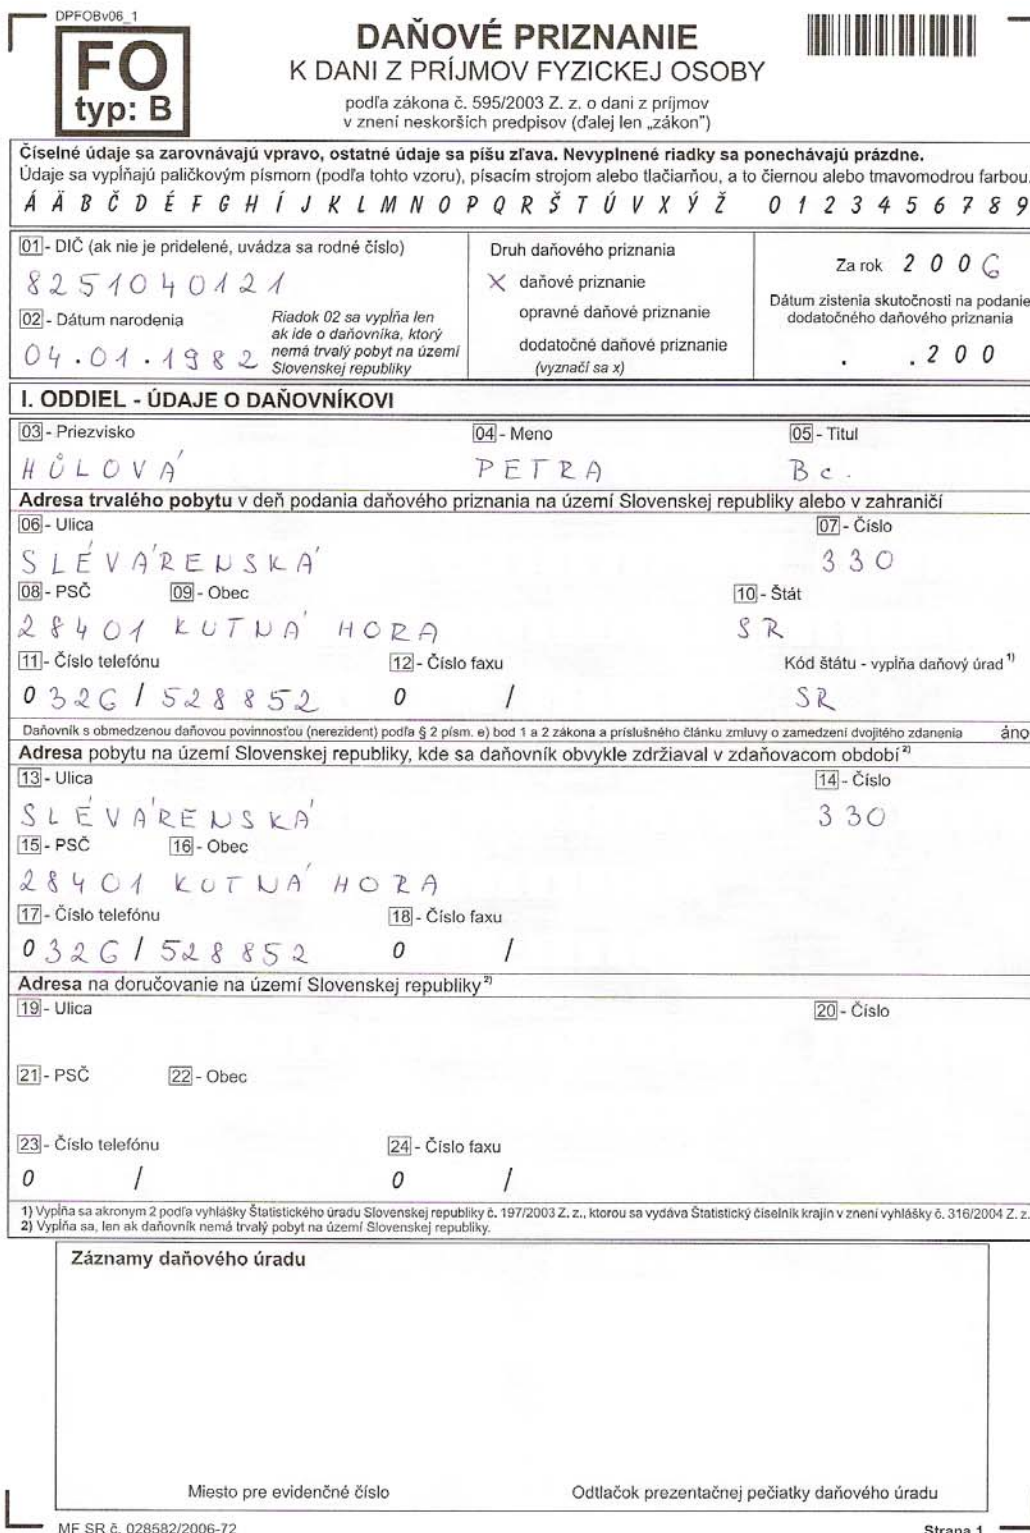 DPFOBv06_1
FO
typ: B
DAŇOVÉ PRIZNANIE
K DANI Z PRÍJMOV FYZICKEJ OSOBY
podľa zákona č. 595/2003 Z. z. o dani z príjmov
v znení neskorších predpisov (ďalej len „zákon")
Číselné údaje sa zarovnávajú vpravo, ostatné údaje sa píšu zľava. Nevyplnené riadky sa ponechávajú prázdne.
Údaje sa vypĺňajú paličkovým písmom (podľa tohto vzoru), písacím strojom alebo tlačiarňou, a to čiernou alebo tmavomodrou farbou.
Á Ä B Č D É F G H Í J K L M N O P Q R Š T Ú V X Ý Ž 0 1 2 3 4 5 6 7 8 9
01 - DIČ (ak nie je pridelené, uvádza sa rodné číslo)
8251040121
02 - Dátum narodenia
04.01.1982
Riadok 02 sa vypĺňa len
ak ide o daňovníka, ktorý
nemá trvalý pobyt na území
Slovenskej republiky
Druh daňového priznania
X daňové priznanie
opravné daňové priznanie
dodatočné daňové priznanie
(vyznačí sa x)
Za rok 2006
Dátum zistenia skutočnosti na podanie
dodatočného daňového priznania
. .200
I. ODDIEL - ÚDAJE O DAŇOVNÍKOVI
03 - Priezvisko 04 - Meno 05 - Titul
HŮLOVÁ PETRA Bc.
Adresa trvalého pobytu v deň podania daňového priznania na území Slovenskej republiky alebo v zahraničí
06 - Ulica 07 - Číslo
SLÉVÁRENSKÁ 330
08 - PSČ 09 - Obec 10 - Štát
28401 KUTNÁ HORA SR
11 - Číslo telefónu 12 - Číslo faxu Kód štátu - vypĺňa daňový úrad 1)
0326 / 528852 0 / SR
Daňovník s obmedzenou daňovou povinnosťou (nerezident) podľa § 2 písm. e) bod 1 a 2 zákona a príslušného článku zmluvy o zamedzení dvojitého zdanenia áno
Adresa pobytu na území Slovenskej republiky, kde sa daňovník obvykle zdržiaval v zdaňovacom období 2)
13 - Ulica 14 - Číslo
SLÉVÁRENSKÁ 330
15 - PSČ 16 - Obec
28401 KUTNÁ HORA
17 - Číslo telefónu 18 - Číslo faxu
0326 / 528852 0 /
Adresa na doručovanie na území Slovenskej republiky 2)
19 - Ulica 20 - Číslo
21 - PSČ 22 - Obec
23 - Číslo telefónu 24 - Číslo faxu
0 / 0 /
1) Vypĺňa sa akronym 2 podľa vyhlášky Štatistického úradu Slovenskej republiky č. 197/2003 Z. z., ktorou sa vydáva Štatistický číselník krajín v znení vyhlášky č. 316/2004 Z. z.
2) Vypĺňa sa, len ak daňovník nemá trvalý pobyt na území Slovenskej republiky.
Záznamy daňového úradu
Miesto pre evidenčné číslo Odtlačok prezentačnej pečiatky daňového úradu
MF SR č. 028582/2006-72 Strana 1